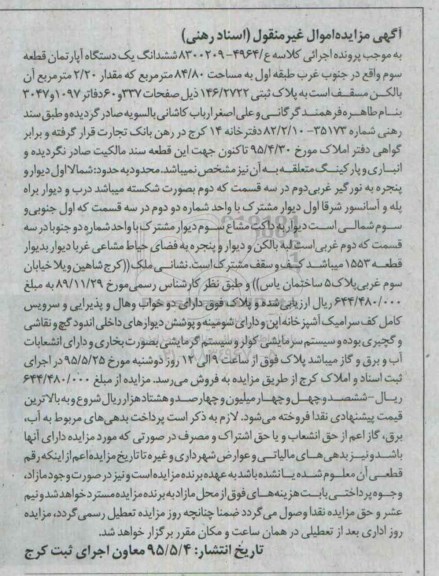 آگهی مزایده اموال غیر منقول (اسناد رهنی)
به موجب پرونده اجرائی کلاسه ع/۴۹۶۴-۸۳۰۰۲۰۹ ششدانگ یک دستگاه آپارتمان قطعه
سوم واقع در جنوب غرب طبقه اول به مساحت ۸۴/۸۰ مترمربع که مقدار ۲/۲۰ مترمربع آن
بالکن مسقف است به پلاک ثبتی ۱۴۶/۲۷۲۲ ذیل صفحات ۳۳۷و۶۰دفاتر ۱۰۹۷و۳۰۴۷
بنام طاهره فرهمند گرگانی و علی اصغر ارباب کاشانی بالسویه صادر گردیده و طبق سند
رهنی شماره ۳۵۱۷۳- ۸۲/۲/۱۰ دفترخانه ۱۴ کرج در رهن بانک تجارت قرار گرفته و برابر
گواهی دفتر املاک مورخ ۹۵/۴/۳۰ تاکنون جهت این قطعه سند مالکیت صادر نگردیده و
انباری و پارکینگ متعلقه به آن نیز مشخص نمیباشد. محدوده به حدود: شمالا اول دیوار و
پنجره به نورگیر غربی دوم در سه قسمت که دوم بصورت شکسته میباشد درب و دیوار براه
پله و آسانسور شرقا اول دیوار مشترک با واحد شماره دو دوم در سه قسمت که اول جنوبی و
سوم شمالی است دیوار به داکت مشاع سوم دیوار مشترک با واحد شماره دو جنوبا در سه
قسمت که دوم غربی است لبه بالکن و دیوار و پنجره به فضای حیاط مشاعی غربا دیوار بدیوار
قطعه ۱۵۵۳ میباشد کف و سقف مشترک است. نشانی ملک ((کرج شاهین ویلا خیابان
سوم غربی پلاک ۵ ساختمان یاس)) و طبق نظر کارشناس رسمی مورخ ۸۹/۱۱/۲۹ به مبلغ
۶۴۴/۴۸۰/۰۰۰ ریال ارزیابی شده و پلاک فوق دارای دو خواب وهال و پذیرایی و سرویس
کامل کف سرامیک آشپزخانه اپن و دارای شومینه و پوشش دیوارهای داخلی اندود گچ و نقاشی
و گچبری بوده و سیستم سرمایشی کولر و سیستم گرمایشی بصورت بخاری و دارای انشعابات
آب و برق و گاز میباشد پلاک فوق از ساعت ۹ الی ۱۲ روز دوشنبه مورخ ۹۵/۵/۲۵ در اجرای
ثبت اسناد و املاک کرج از طریق مزایده به فروش می‌رسد. مزایده از مبلغ ۶۴۴/۴۸۰/۰۰۰
ریال -ششصد و چهل و چهار میلیون و چهارصد و هشتاد هزار ریال شروع و به بالاترین
قیمت پیشنهادی نقدا فروخته می‌شود. لازم به ذکر است پرداخت بدهی‌های مربوط به آب،
برق، گاز اعم از حق انشعاب و یا حق اشتراک و مصرف در صورتی که مورد مزایده دارای آنها
باشد و نیز بدهی‌های مالیاتی و عوارض شهرداری و غیره تا تاریخ مزایده اعم از اینکه رقم
قطعی آن معلوم شده یا نشده باشد به عهده برنده مزایده است و نیز در صورت وجود مازاد،
وجوه پرداختی بابت هزینه‌های فوق از محل مازاد به برنده مزایده مسترد خواهد شد و نیم
عشر و حق مزایده نقدا وصول می‌گردد ضمنا چنانچه روز مزایده تعطیل رسمی گردد، مزایده
روز اداری بعد از تعطیلی در همان ساعت و مکان مقرر برگزار خواهد شد.
تاریخ انتشار: ۹۵/۵/۴ معاون اجرای ثبت کرج